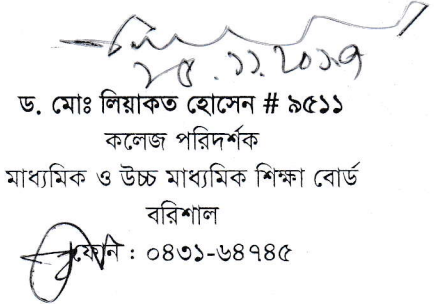 ২৫.১১.২০১৭
ড. মোঃ লিয়াকত হোসেন # ৯৫১১
কলেজ পরিদর্শক
মাধ্যমিক ও উচ্চ মাধ্যমিক শিক্ষা বোর্ড
বরিশাল
ফোন : ০৪৩১-৬৪৭৪৫